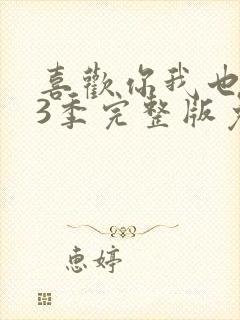 喜歡你我也
3季完整版
惠婷